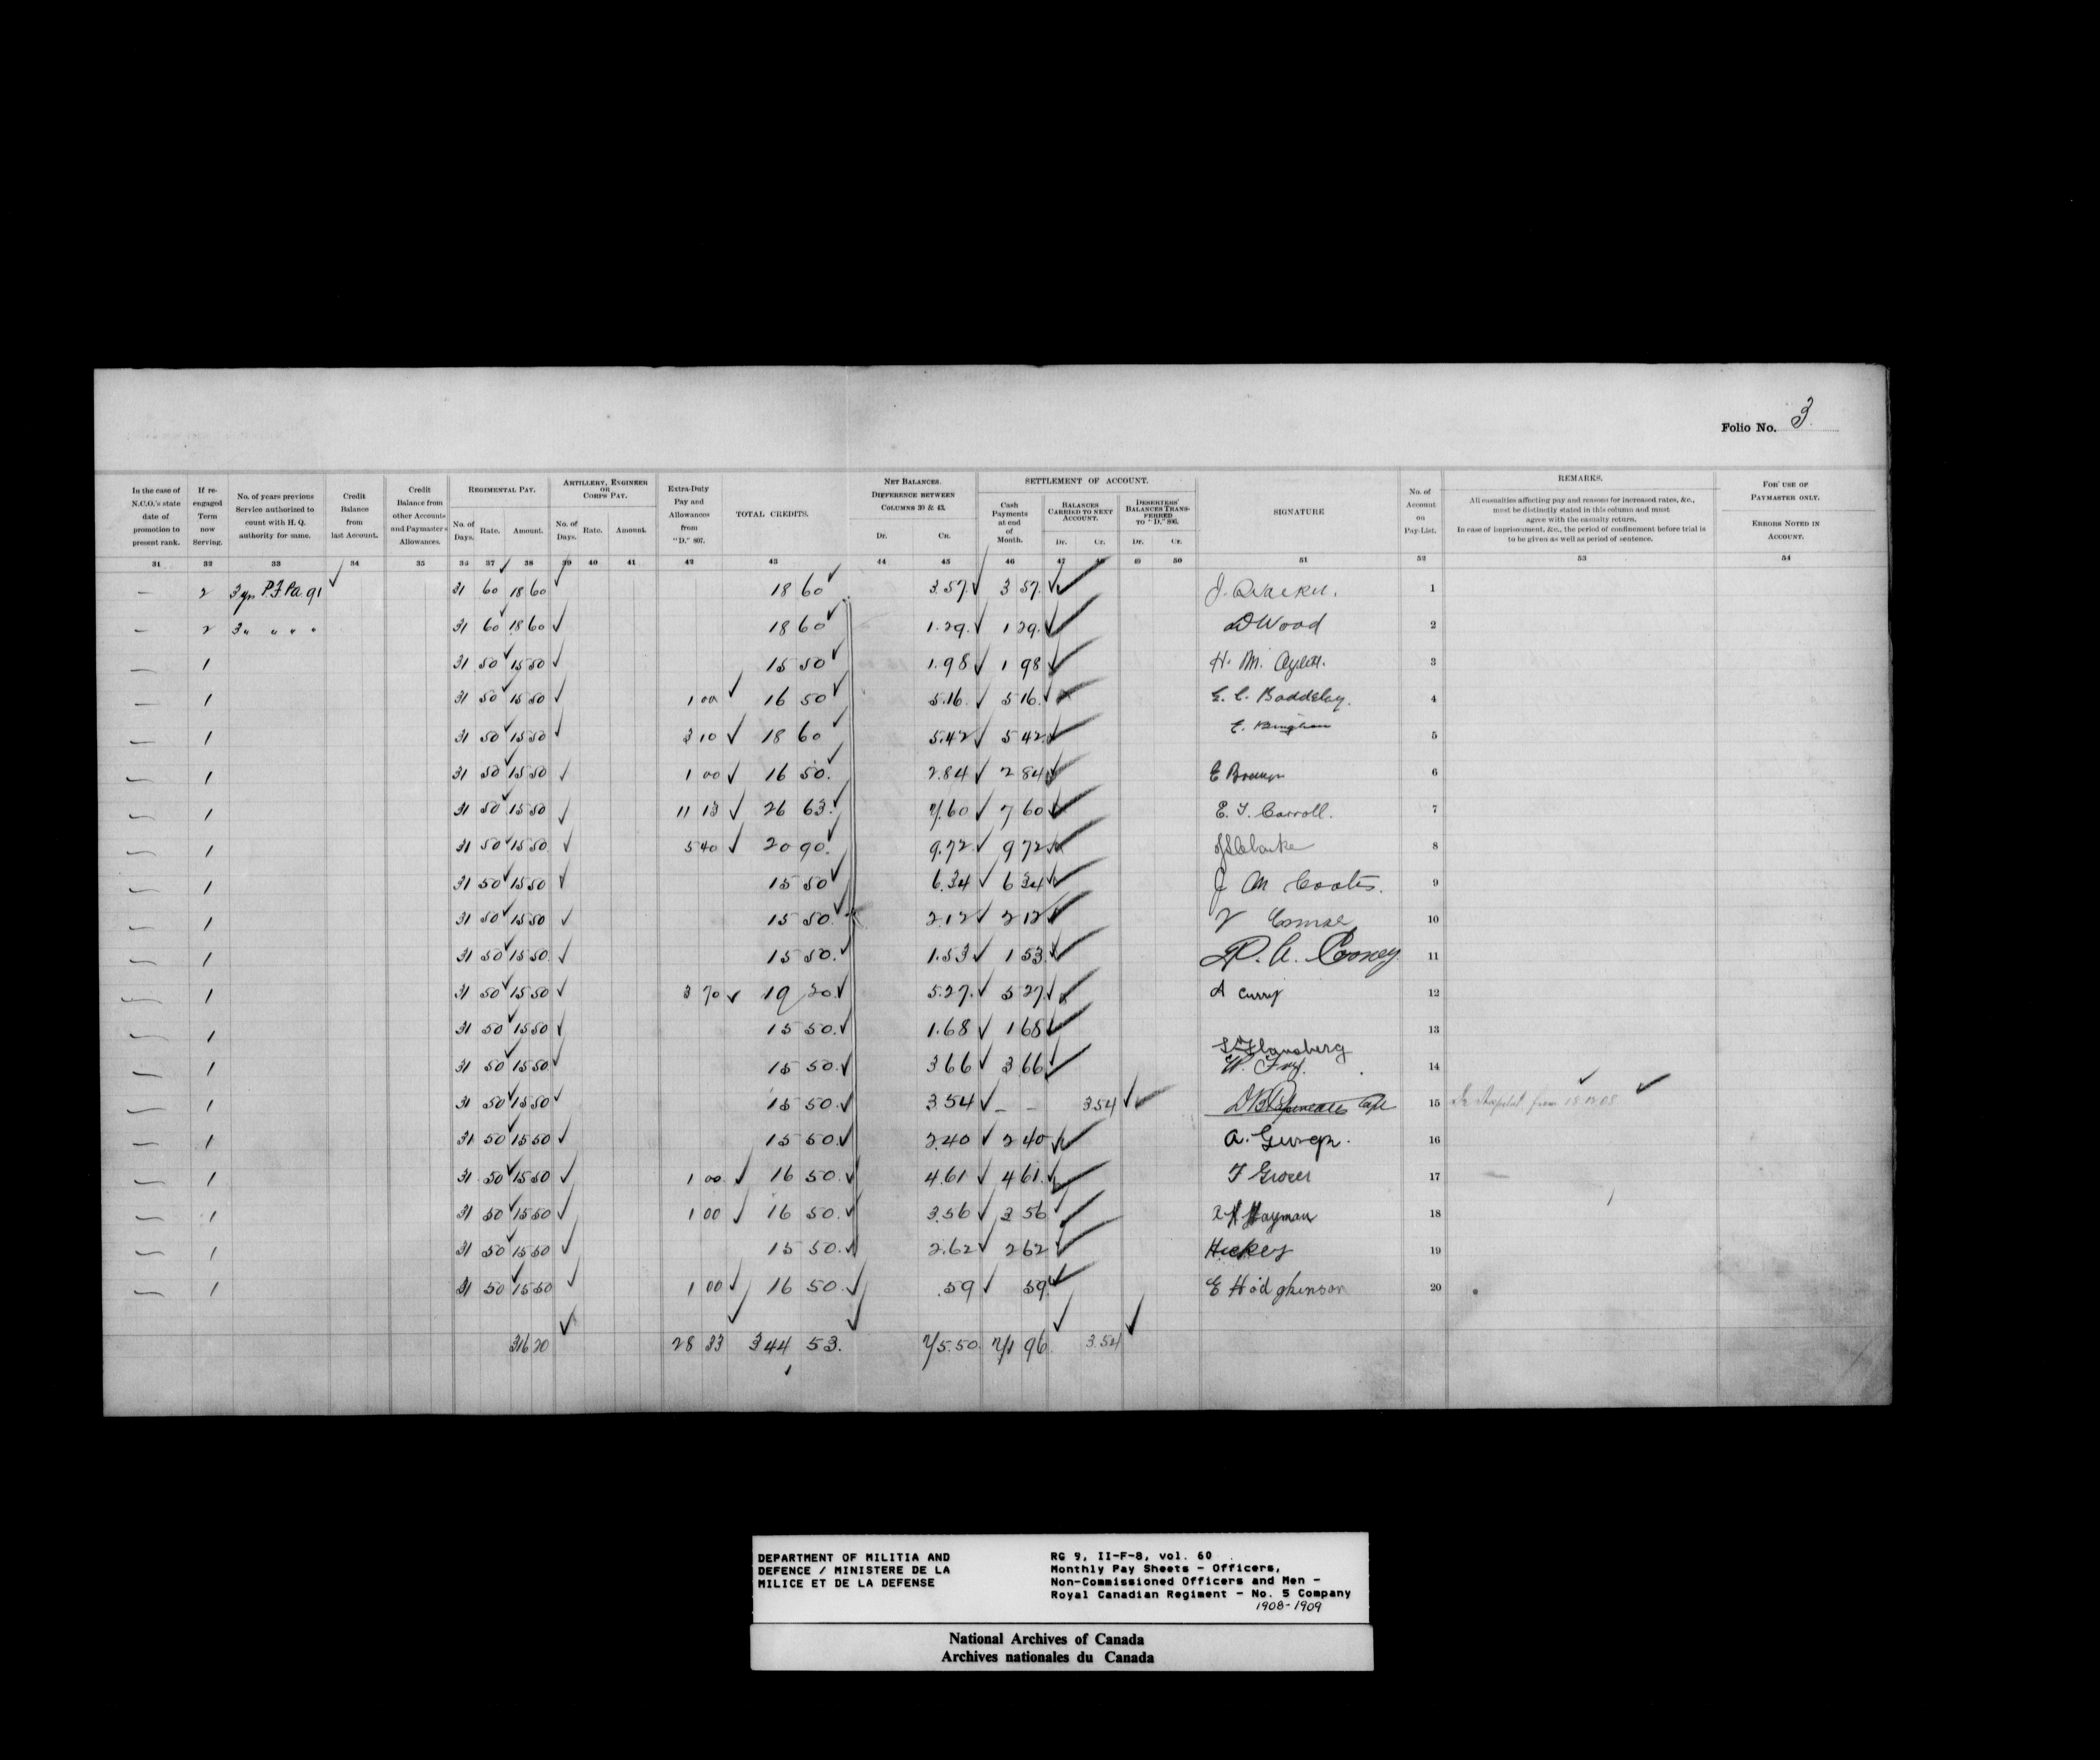 Folio No. 3.
In the case of N.C.O.'s state date of promotion to present rank.
If re-engaged Term now Serving.
No. of years previous Service authorized to count with H. Q. authority for same.
Credit Balance from last Account.
Credit Balance from other Accounts and Paymaster's Allowances.
REGIMENTAL PAY.
No. of Days. Rate. Amount.
ARTILLERY, ENGINEER OR CORPS PAY.
No. of Days. Rate. Amount.
Extra-Duty Pay and Allowances from "D." 807.
TOTAL CREDITS.
NET BALANCES. DIFFERENCE BETWEEN COLUMNS 30 & 43.
Dr. Cr.
SETTLEMENT OF ACCOUNT.
Cash Payments at end of Month.
BALANCES CARRIED TO NEXT ACCOUNT.
Dr. Cr.
DESERTERS' BALANCES TRANSFERRED TO "D." 806.
Dr. Cr.
SIGNATURE
No. of Account on Pay-List.
REMARKS.
All casualties affecting pay and reasons for increased rates, &c., must be distinctly stated in this column and must agree with the casualty return.
In case of imprisonment, &c., the period of confinement before trial is to be given as well as period of sentence.
FOR USE OF PAYMASTER ONLY.
ERRORS NOTED IN ACCOUNT.
31 32 33 34 35 36 37 38 39 40 41 42 43 44 45 46 47 48 49 50 51 52 53 54
— 2 3 yrs P.F Pa. 91 31 60 18 60 18 60 3.57 3 57 J. 1
— 2 3 " " " " 31 60 18 60 18 60 1.29 1 29 D Wood 2
— 1 31 50 15 50 15 50 1.98 1 98 H. M. Aylett. 3
— 1 31 50 15 50 1 00 16 50 5.16 5 16 E. C. Baddeley. 4
— 1 31 50 15 50 3 10 18 60 5.42 5 42 E. Bingham 5
— 1 31 50 15 50 1 00 16 50 2.84 2 84 E 6
— 1 31 50 15 50 11 13 26 63 7.60 7 60 E. T. Carroll. 7
— 1 31 50 15 50 5 40 20 90 9.72 9 72 8
— 1 31 50 15 50 15 50 6.34 6 34 J M Coates. 9
— 1 31 50 15 50 15 50 2.12 2 12 10
— 1 31 50 15 50 15 50 1.53 1 53 A. Cooney 11
— 1 31 50 15 50 3 70 19 20 5.27 5 27 A Curry 12
— 1 31 50 15 50 15 50 1.68 1 68 Flansberg 13
— 1 31 50 15 50 15 50 3 66 3 66 W. Fry. 14
— 1 31 50 15 50 15 50 3 54 — — 3 54 Capt 15 In Hospital from 18.12.08
— 1 31 50 15 50 15 50 2.40 2 40 A. 16
— 1 31 50 15 50 1 00 16 50 4.61 4 61 F Grocer 17
— 1 31 50 15 50 1 00 16 50 3.56 3 56 A H Hayman 18
— 1 31 50 15 50 15 50 2.62 2 62 Hickey 19
— 1 31 50 15 50 1 00 16 50 .59 59 E Hodgkinson 20
316 20 28 33 344 53. 75.50 71 96 3.54
DEPARTMENT OF MILITIA AND
DEFENCE / MINISTERE DE LA
MILICE ET DE LA DEFENSE
RG 9, II-F-8, vol. 60
Monthly Pay Sheets - Officers,
Non-Commissioned Officers and Men -
Royal Canadian Regiment - No. 5 Company
1908-1909
National Archives of Canada
Archives nationales du Canada